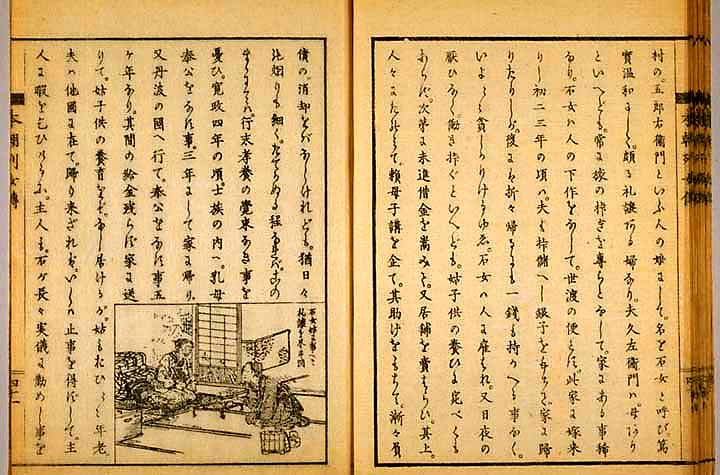 村の。五郎右衛門といふ人の母にして。名を石女と呼び萬
實温和にして。頗る礼讓ある婦なり。夫久左衛門は。母あり
といへども。常に嫁の挊ぎを専らとなして。家にある事稀
なり。石女は人の下作をなして。世渡の便とす。此家に嫁来
りし初二三年の頃は。夫も挊儲へし銀子を家に歸
りたりしが。後には折々歸るにも一錢も持かへる事なく。
いよ〳〵貧しかりけるゆゑ。石女は人に雇はれ。又日夜の
厭ひなく。働き挊ぐといへども。姑子供の養ひに
あらず。次第に未進借金を嵩みて。又居舗を賣はらい。其上。
人々に頼母子講を企て。其助けをもちて。漸々負
債の。消却をばなしけれども。猶日々
烟りも細く。たてかぬる程なれば。この
まゝにては。行末孝養の覚束なき事を
憂ひ。寛政四年の頃。士族の内へ。乳母
奉公をなす事。三年にして家に歸り
又丹波の國へ行て。奉公をなす事五
ヶ年なり。其間の給金残らず家に送
りて。姑子供の養育をぞなし居けるが。姑もおひ〳〵年老
夫は他國に在て。歸り来ざれば。いしは止事を得ずして。主
人に暇を乞ひけるに。主人も。石が長々実儀に勤めし事を
石女姑に事へて
礼讓を尽す図
本朝列女傳
四十二